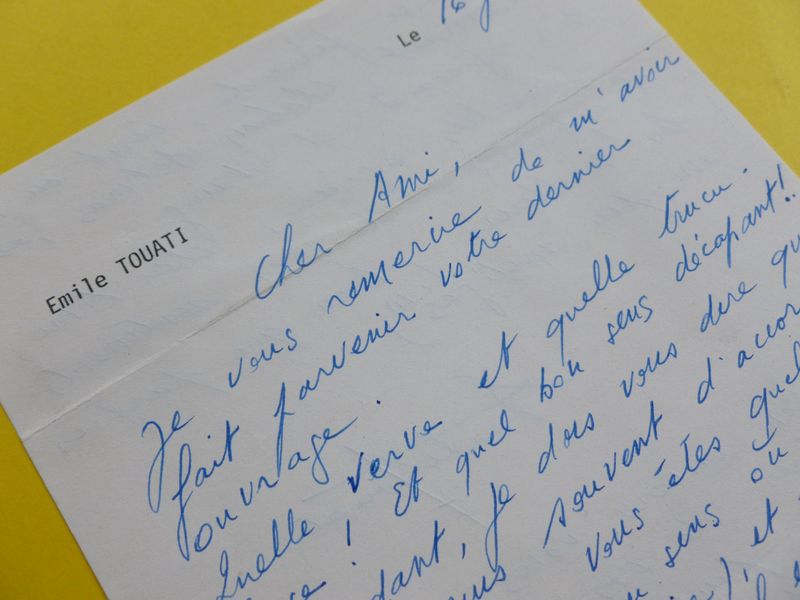 Le 16 j
Emile TOUATI
Cher Ami,
Je vous remercie de m'avoir
fait parvenir votre dernier
ouvrage.
Quelle verve et quelle trucu-
! Et quel bon sens décapant!
dant, je dois vous dire qu
souvent d'accor
vous êtes quel
sens où
et